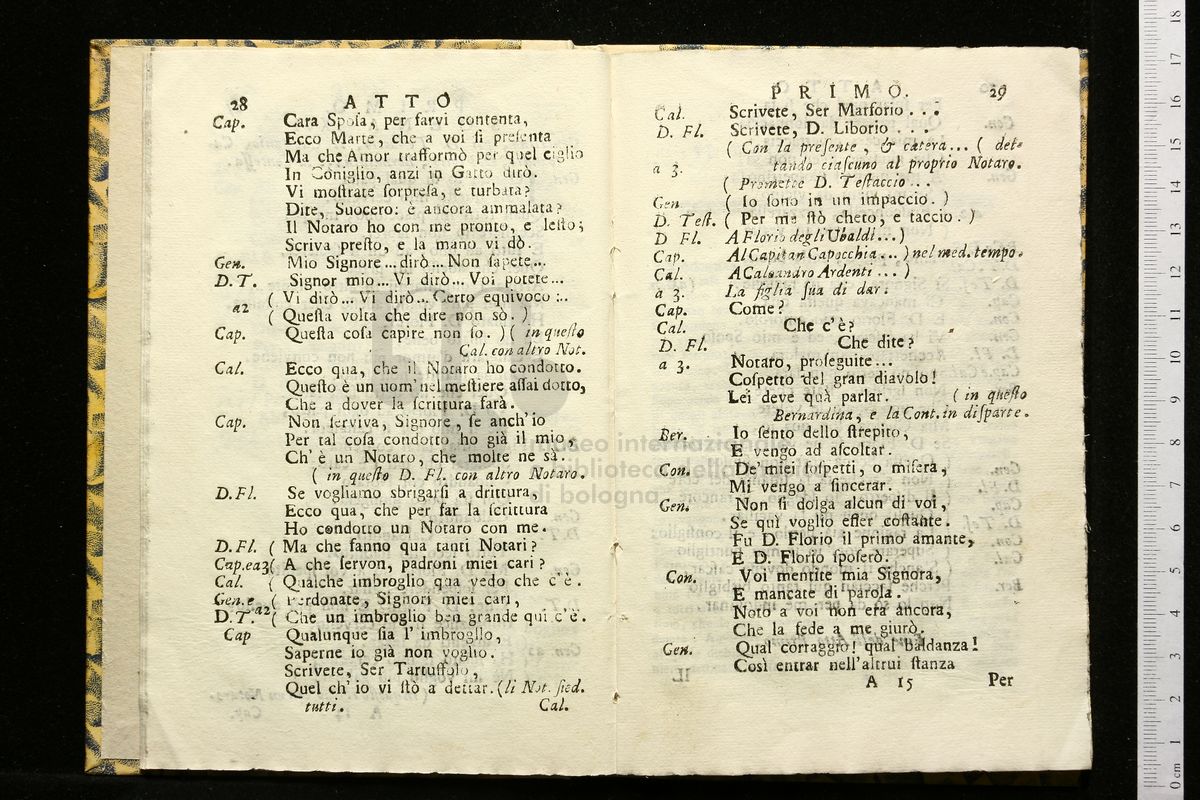 28 ATTO
Cap. Cara Spoſa, per farvi contenta,
Ecco Marte, che a voi ſi preſenta
Ma che Amor traſformò per quel ciglio
In Coniglio, anzi in Gatto dirò.
Vi moſtrate ſorpreſa, e turbata?
Dite, Suocero: è ancora ammalata?
Il Notaro ho con me pronto, e leſto;
Scriva preſto, e la mano vi dò.
Gen. Mio Signore ... dirò ... Non ſapete ...
D. T. Signor mio ... Vi dirò ... Voi potete ...
a2 ( Vi dirò ... Vi dirò ... Certo equivoco ...
( Queſta volta che dire non sò. )
Cap. Queſta coſa capire non ſo. ) ( in queſto
Cal. con altro Not.
Cal. Ecco qua, che il Notaro ho condotto.
Queſto è un uom' nel meſtiere aſſai dotto,
Che a dover la ſcrittura farà.
Cap. Non ſerviva, Signore, ſe anch'io
Per tal coſa condotto ho già il mio,
Ch' è un Notaro, che molte ne sà.
( in queſto D. Fl. con altro Notaro.
D. Fl. Se vogliamo sbrigarſi a drittura,
Ecco qua, che per far la ſcrittura
Ho condotto un Notaro con me.
D. Fl. ( Ma che fanno qua tanti Notari?
Cap. e a3 ( A che ſervon, padroni miei cari?
Cal. ( Qualche imbroglio qua vedo che c'è.
Gen. e ( Perdonate, Signori miei cari,
D. T. a2 ( Che un imbroglio ben grande quì c'è.
Cap Qualunque ſia l' imbroglio,
Saperne io già non voglio.
Scrivete, Ser Tartuffolo,
Quel ch' io vi ſtò a dettar. ( li Not. ſied.
tutti. Cal.
PRIMO. 29
Cal. Scrivete, Ser Marforio . . .
D. Fl. Scrivete, D. Liborio . . .
( Con la preſente, & cætera ... ( det-
a 3. tando ciaſcuno al proprio Notaro.
( Promette D. Teſtaccio ...
Gen ( Io ſono in un impaccio. )
D. Teſt. ( Per me ſtò cheto, e taccio. )
D Fl. A Florio degli Ubaldi ... )
Cap. Al Capitan Capocchia ... ) nel med. tempo.
Cal. A Caloandro Ardenti ... )
a 3. La figlia ſua di dar.
Cap. Come?
Cal. Che c'è?
D. Fl. Che dite?
a 3. Notaro, proſeguite ...
Coſpetto del gran diavolo!
Lei deve quà parlar. ( in queſto
Bernardina, e la Cont. in diſparte.
Ber. Io ſento dello ſtrepito,
E vengo ad aſcoltar.
Con. De' miei ſoſpetti, o miſera,
Mi vengo a ſincerar.
Gen. Non ſi dolga alcun di voi,
Se quì voglio eſſer coſtante.
Fu D. Florio il primo amante,
E D. Florio ſpoſerò.
Con. Voi mentite mia Signora,
E mancate di parola.
Noto a voi non era ancora,
Che la fede a me giurò.
Gen. Qual corraggio! qual baldanza!
Così entrar nell'altrui ſtanza
A 15 Per
museo internazionale
biblioteca della
di bologna